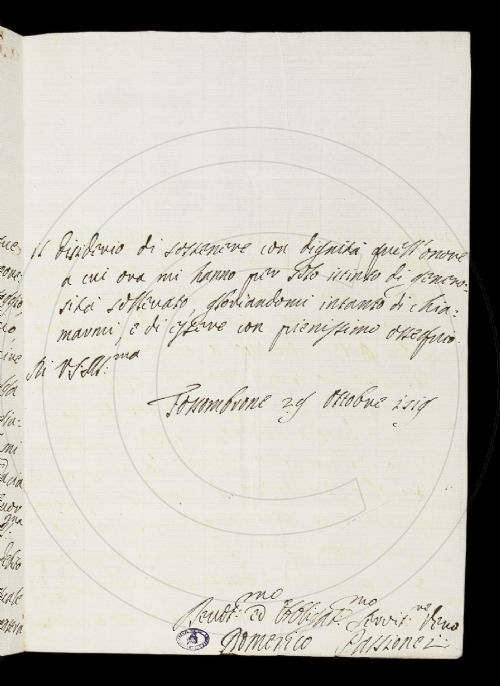 il disiderio di sostenere con dignità quell'onore
a cui ora mi hanno per solo istinto di genero-
sità sollevato, gloriandomi intanto di chia-
marmi, e di essere con pienissimo ossequio.
Di V.S. Ill:ma
Fossombrone 29 Ottobre
Devot:mo ed Obbligat:mo Servit:re Vero
Domenico Passionei